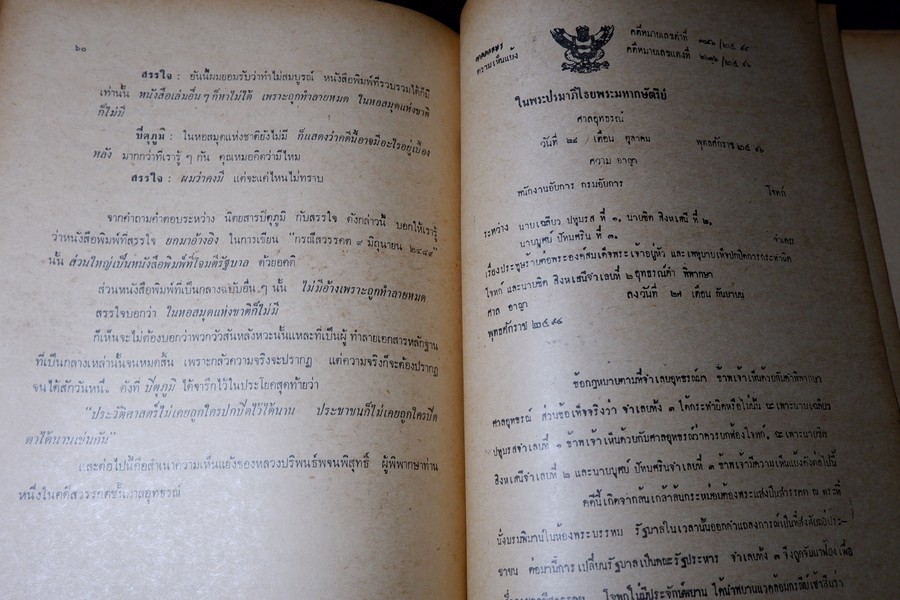 ๖๐
สรรใจ : อันนี้ผมยอมรับว่าทำไม่สมบูรณ์ หนังสือพิมพ์ที่รวบรวมได้ก็มี
เท่านั้น หนังสือเล่มอื่นๆ ก็หาไม่ได้ เพราะถูกทำลายหมด ในหอสมุดแห่งชาติ
ก็ไม่มี
ปิตุภูมิ : ในหอสมุดแห่งชาติยังไม่มี ก็แสดงว่าคดีนี้อาจมีอะไรอยู่เบื้อง
หลัง มากกว่าที่เรารู้ ๆ กัน คุณหมอคิดว่ามีไหม
สรรใจ : ผมว่าคงมี แต่จะแค่ไหนไม่ทราบ
จากคำถามคำตอบระหว่าง นิตยสารปิตุภูมิ กับสรรใจ ดังกล่าวนี้ บอกให้เรารู้
ว่าหนังสือพิมพ์ที่สรรใจ ยกมาอ้างอิง ในการเขียน "กรณีสวรรคต ๙ มิถุนายน ๒๔๘๙"
นั้น ส่วนใหญ่เป็นหนังสือพิมพ์ที่โจมตีรัฐบาล ด้วยอคติ
ส่วนหนังสือพิมพ์ที่เป็นกลางฉบับอื่นๆ นั้น ไม่มีอ้างเพราะถูกทำลายหมด
สรรใจบอกว่า ในหอสมุดแห่งชาติก็ไม่มี
ก็เห็นจะไม่ต้องบอกว่าพวกวัวสันหลังหวะนั้นแหละที่เป็นผู้ ทำลายเอกสารหลักฐาน
ที่เป็นกลางเหล่านั้นจนหมดสิ้น เพราะกลัวความจริงจะปรากฏ แต่ความจริงก็จะต้องปรากฏ
จนได้สักวันหนึ่ง ดังที่ ปิตุภูมิ ได้จารึกไว้ในประโยคสุดท้ายว่า
"ประวัติศาสตร์ไม่เคยถูกใครปกปิดไว้ได้นาน ประชาชนก็ไม่เคยถูกใครปิด
ตาได้นานเช่นกัน"
และต่อไปนี้คือสำเนาความเห็นแย้งของหลวงปริพนธ์พจนพิสุทธิ์ ผู้พิพากษาท่าน
หนึ่งในคดีสวรรคตชั้นศาลอุทธรณ์
ความเห็นแย้ง
คดีหมายเลขดำที่
คดีหมายเลขแดงที่
ในพระปรมาภิไธยพระมหากษัตริย์
ศาลอุทธรณ์
วันที่ ๒๘ / เดือน ตุลาคม พุทธศักราช ๒๔๙๖
ความ อาญา
พนักงานอัยการ กรมอัยการ โจทก์
ระหว่าง นายเฉลียว ปทุมรส ที่ ๑, นายชิต สิงหเสนี ที่ ๒,
นายบุศย์ ปัทมศริน ที่ ๓. จำเลย
เรื่องประทุษร้ายต่อพระองค์สมเด็จพระเจ้าอยู่หัว และเหตุบายเพื่อปกปิดการกระทำผิด
โจทก์ และนายชิต สิงหเสนีจำเลยที่ ๒ อุทธรณ์คำ พิพากษา
ศาล อาญา ลงวันที่ ๒๗ เดือน กันยายน
พุทธศักราช ๒๔๙๔
ข้อกฎหมายตามที่จำเลยอุทธรณ์มา ข้าพเจ้าเห็นด้วยกับคำพิพากษา
ศาลอุทธรณ์ ส่วนข้อเท็จจริงว่า จำเลยทั้ง ๓ ได้กระทำผิดหรือไม่นั้น ฉะเพาะนายเฉลียว
ปทุมรสจำเลยที่ ๑ ข้าพเจ้าเห็นด้วยกับศาลอุทธรณ์ว่าควรยกฟ้องโจทก์, ฉะเพาะนายชิต
สิงหเสนีจำเลยที่ ๒ และนายบุศย์ ปัทมศรินจำเลยที่ ๓ ข้าพเจ้ามีความเห็นแย้งดังต่อไปนี้
คดีนี้เกิดจากล้นเกล้าล้นกระหม่อมต้องพระแสงปืนสวรรคต ณ พระที่
นั่งบรมพิมานในห้องพระบรรทม รัฐบาลในเวลานั้นออกคำแถลงการณ์เป็นที่สงสัยแก่ประ-
ชาชน ต่อมามีการ เปลี่ยนรัฐบาลเป็นคณะรัฐประหาร จำเลยทั้ง ๓ จึงถูกจับมาฟ้อง เพื่อ
โจทก์ไม่มีประจักษ์พยาน ได้นำพยานแวดล้อมกรณีย์เข้าสืบว่า